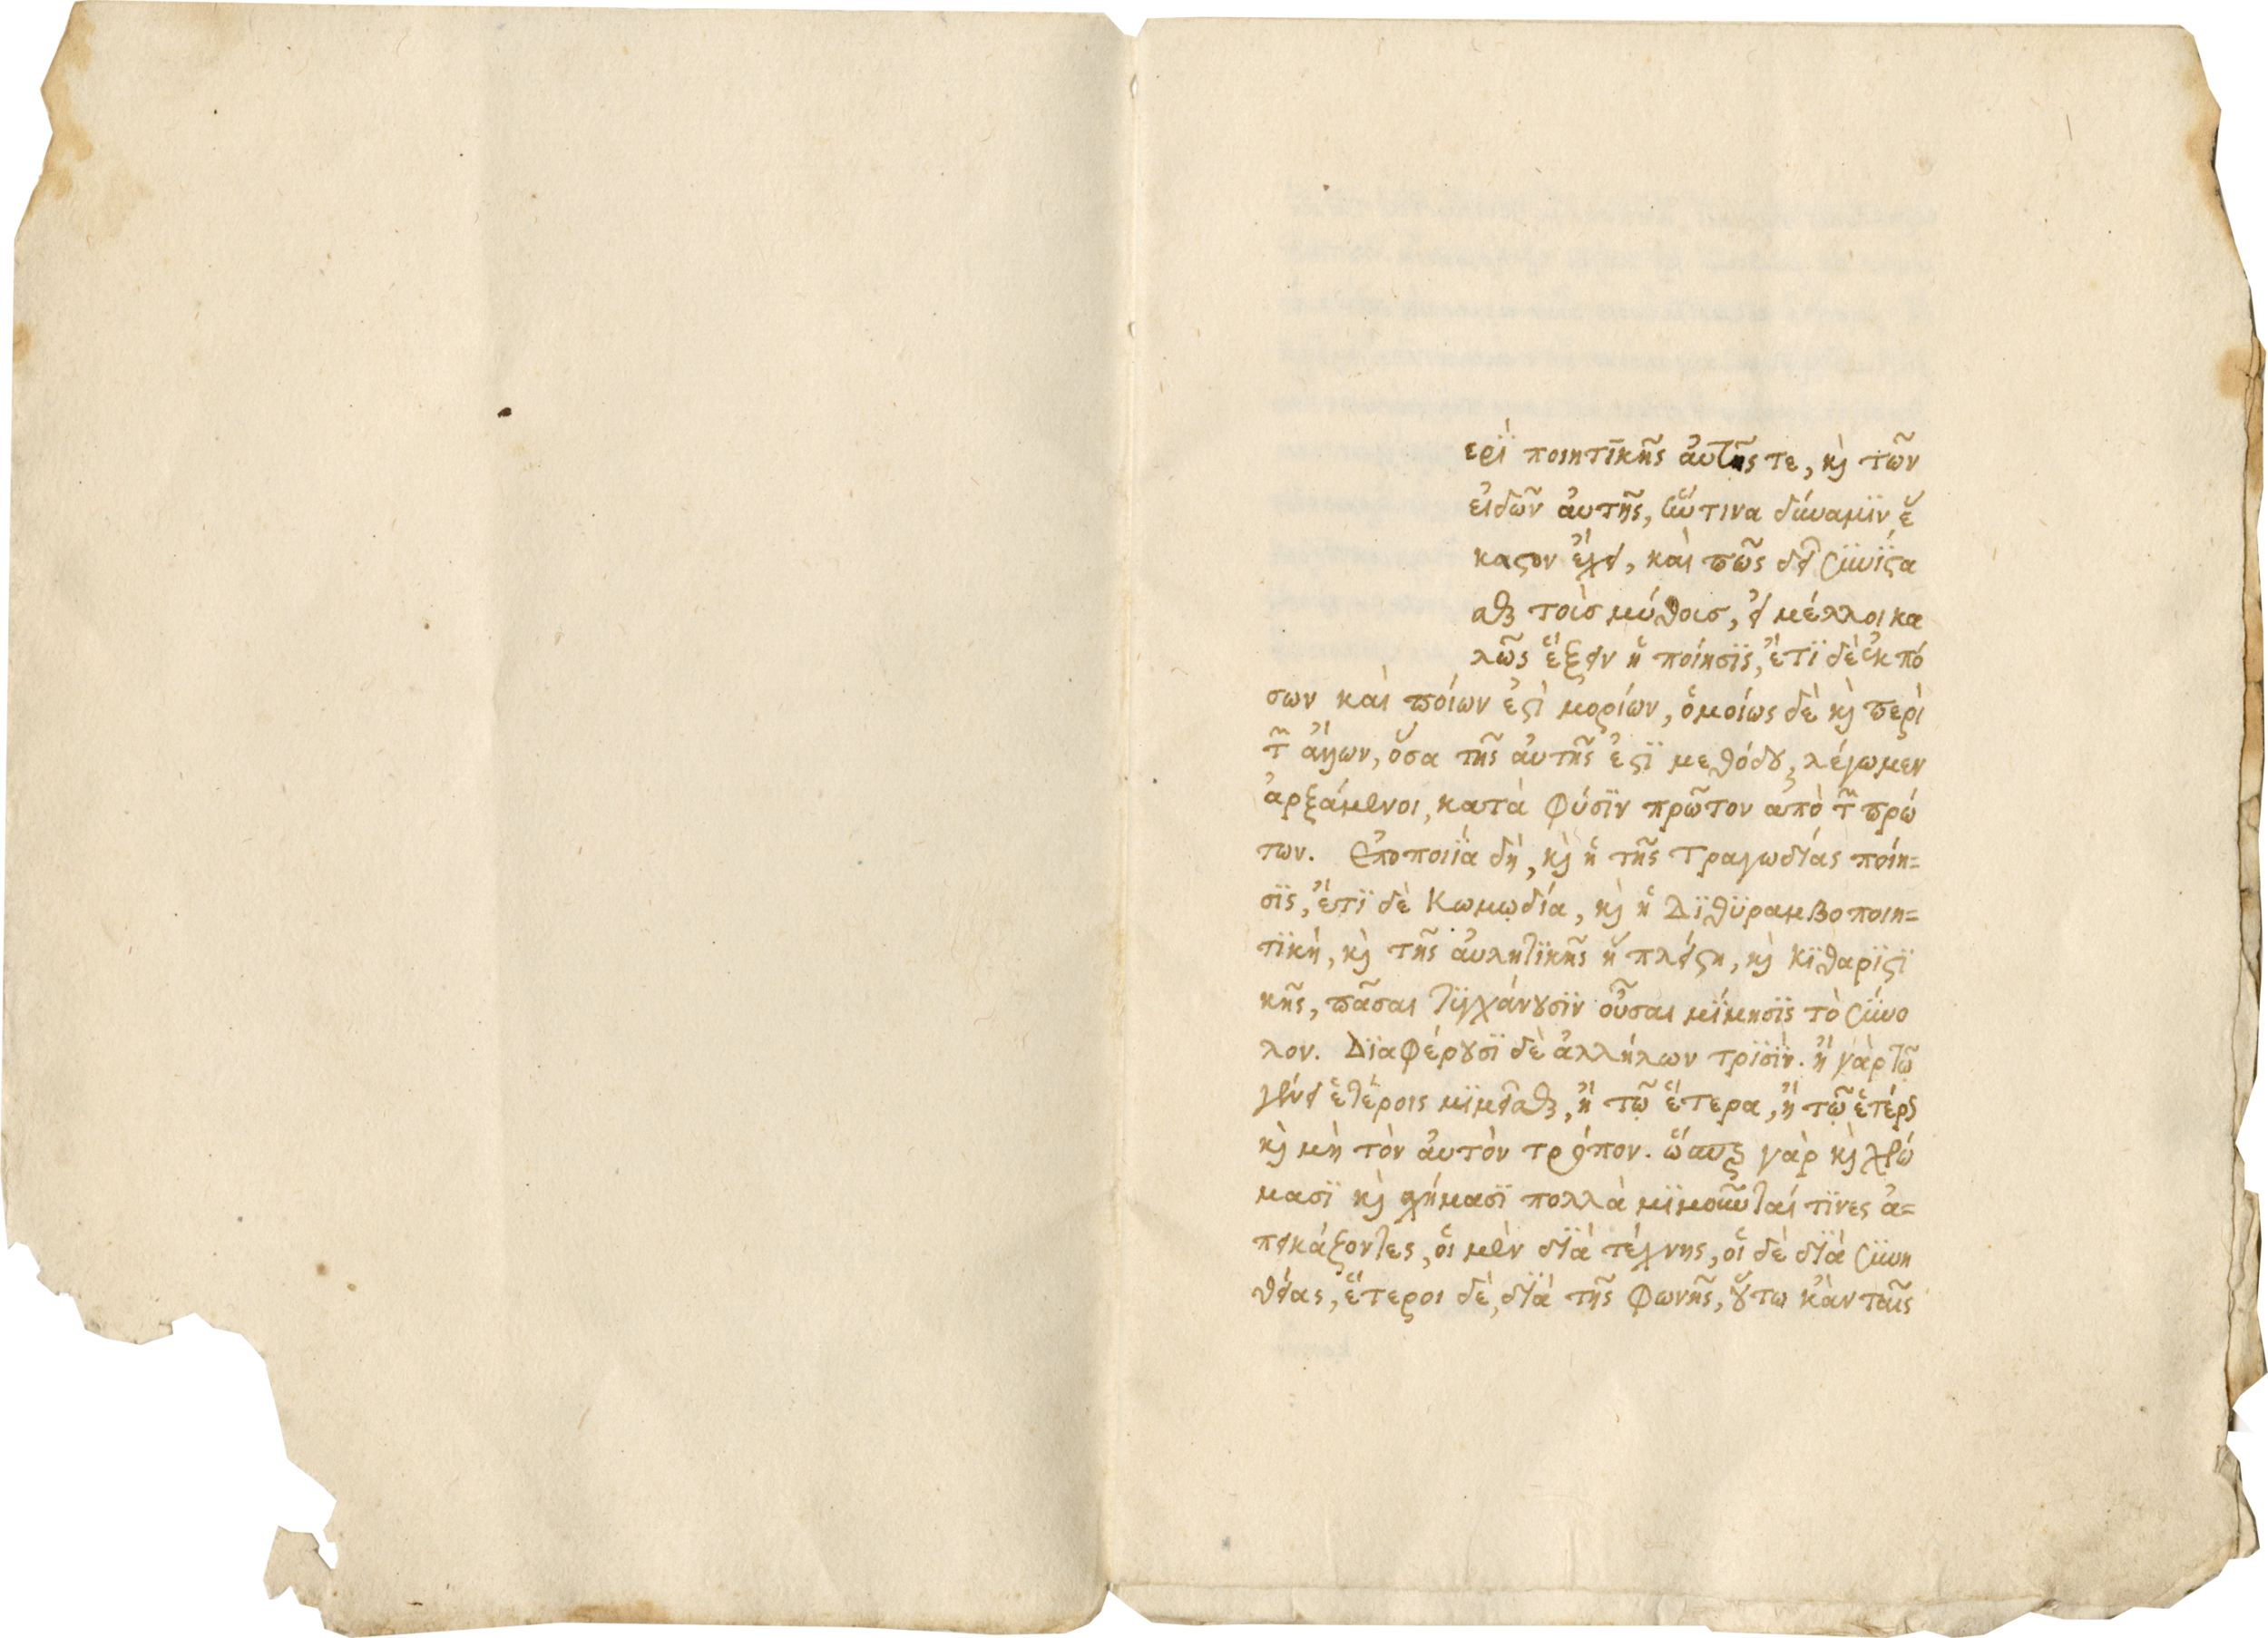 ερὶ ποιητικῆς ἀυτῆς τε, κ̀ τῶν
ἐιδῶν ἀυτῆς, ἥντινα δύναμιν ἕ
καϛον ἔχει, καὶ πῶς δεῖ συνίϛα
σθαι τοὶσ μύθοισ, εἰ μέλλοι κα
λῶς ἕξειν ἡ ποίησις, ἔτι δὲ ἐκ πό
σων καὶ ποίων ἐϛὶ μορίων, ὁμοίως δὲ κ̀ περὶ
τ῀ ἄλλων, ὅσα τῆς ἀυτῆς ἐϛι μεθόδȣ, λέγωμεν
ἀρξάμενοι, κατὰ φύσιν πρῶτον ἀπὸ τ῀ πρώ
των. Εποποιΐα δὴ, κ̀ ἡ τῆς Τραγωδίας ποίη=
σις, ἔτι δὲ Κωμῳδία, κ̀ ἡ Διθυραμβοποιη=
τικὴ, κ̀ τῆς ἀυλητικῆς ἡ πλείϛη, κ̀ Κιθαριϛι
κῆς, πᾶσαι τυγχάνȣσιν οὖσαι μίμησις τὸ σύνο
λον. Διαφέρȣσι δὲ ἀλλήλων τρισὶν. ἢ γὰρ τῷ
γένει ἑτέροις μιμεῖσθαι, ἢ τῷ ἕτερα, ἢ τῷ ἑτέρως
κ̀ μὴ τὸν ἀυτὸν τρόπον. ὥσπερ γὰρ κ̀ χρώ
μασι κ̀ χήμασι πολλὰ μιμοῦνταί τινες ἀ=
πεικάζοντες, ὁι μὲν διὰ τέχνης, ὁι δὲ διὰ συνη
θείας, ἕτεροι δὲ, διὰ τῆς φωνῆς, ȣ̔́τω κἀν ταῖς